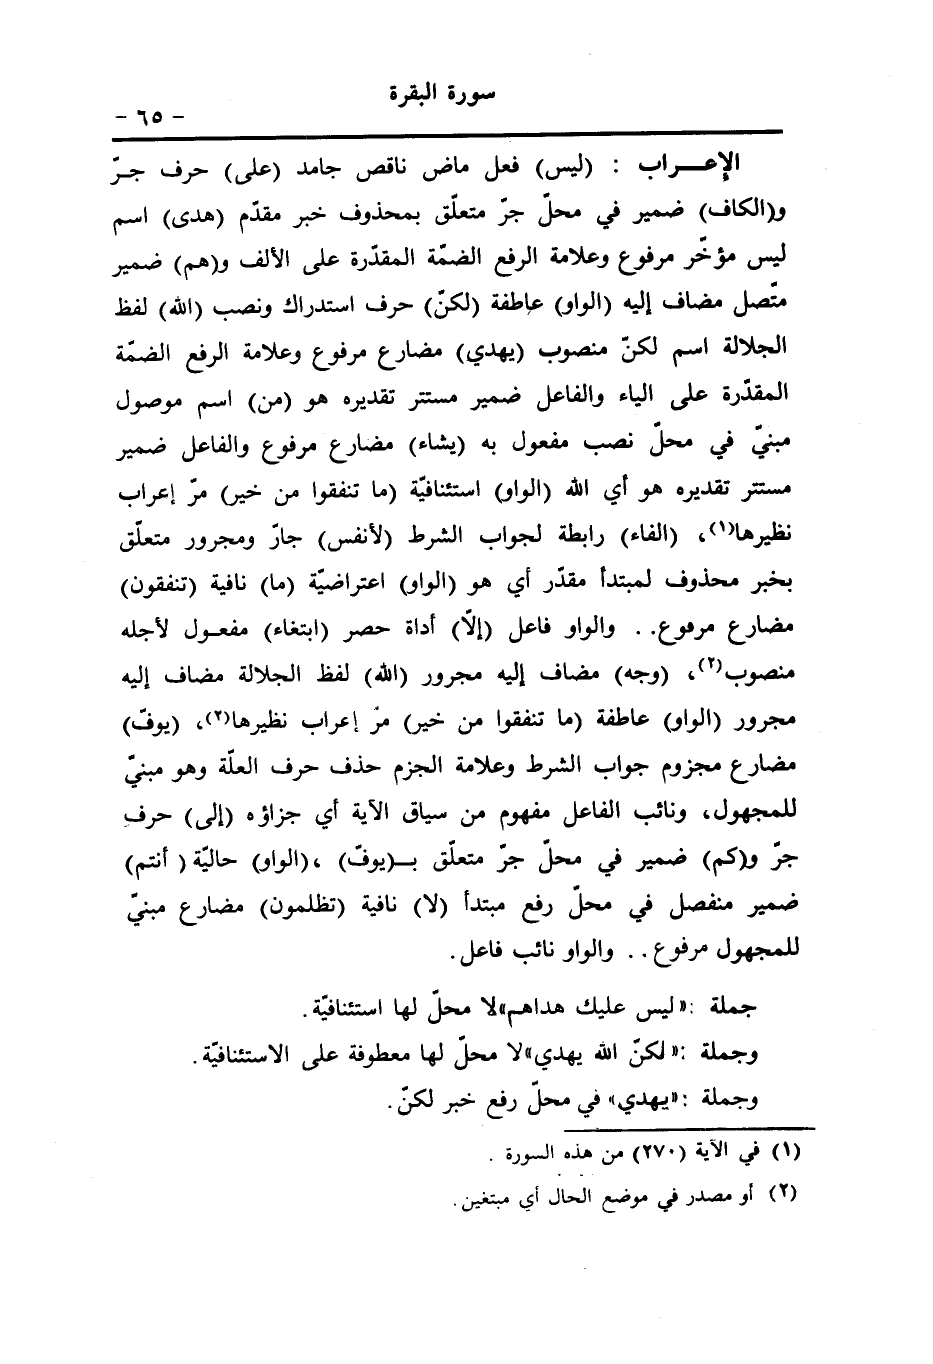 سورة البقرة
- ٦٥ -
الإعـــراب : (ليس) فعل ماض ناقص جامد (على) حرف جـرّ
و(الكاف) ضمير في محلّ جرّ متعلّق بمحذوف خبر مقدّم (هدى) اسم
ليس مؤخّر مرفوع وعلامة الرفع الضمّة المقدّرة على الألف و(هم) ضمير
متّصل مضاف إليه (الواو) عاطفة (لكنّ) حرف استدراك ونصب (الله) لفظ
الجلالة اسم لكنّ منصوب (يهدي) مضارع مرفوع وعلامة الرفع الضمّة
المقدّرة على الياء والفاعل ضمير مستتر تقديره هو (من) اسم موصول
مبنيّ في محلّ نصب مفعول به (يشاء) مضارع مرفوع والفاعل ضمير
مستتر تقديره هو أي الله (الواو) استئنافيّة (ما تنفقوا من خير) مرّ إعراب
نظيرها(١)، (الفاء) رابطة لجواب الشرط (لأنفس) جارّ ومجرور متعلّق
بخبر محذوف لمبتدأ مقدّر أي هو (الواو) اعتراضيّة (ما) نافية (تنفقون)
مضارع مرفوع.. والواو فاعل (إلّا) أداة حصر (ابتغاء) مفعـول لأجله
منصوب(٢)، (وجه) مضاف إليه مجرور (الله) لفظ الجلالة مضاف إليه
مجرور (الواو) عاطفة (ما تنفقوا من خير) مرّ إعراب نظيرها(٢)، (يوفّ)
مضارع مجزوم جواب الشرط وعلامة الجزم حذف حرف العلّة وهو مبنيّ
للمجهول، ونائب الفاعل مفهوم من سياق الآية أي جزاؤه (إلى) حرف
جرّ و(كم) ضمير في محلّ جرّ متعلّق بـ(يوفّ) ،(الواو) حاليّة ( أنتم)
ضمير منفصل في محلّ رفع مبتدأ (لا) نافية (تظلمون) مضارع مبنيّ
للمجهول مرفوع.. والواو نائب فاعل.
جملة :«ليس عليك هداهم»لا محلّ لها استئنافيّة.
وجملة :«لكنّ الله يهدي»لا محلّ لها معطوفة على الاستئنافيّة.
وجملة :«يهدي» في محلّ رفع خبر لكنّ.
(١) في الآية (٢٧٠) من هذه السورة .
(٢) أو مصدر في موضع الحال أي مبتغين.